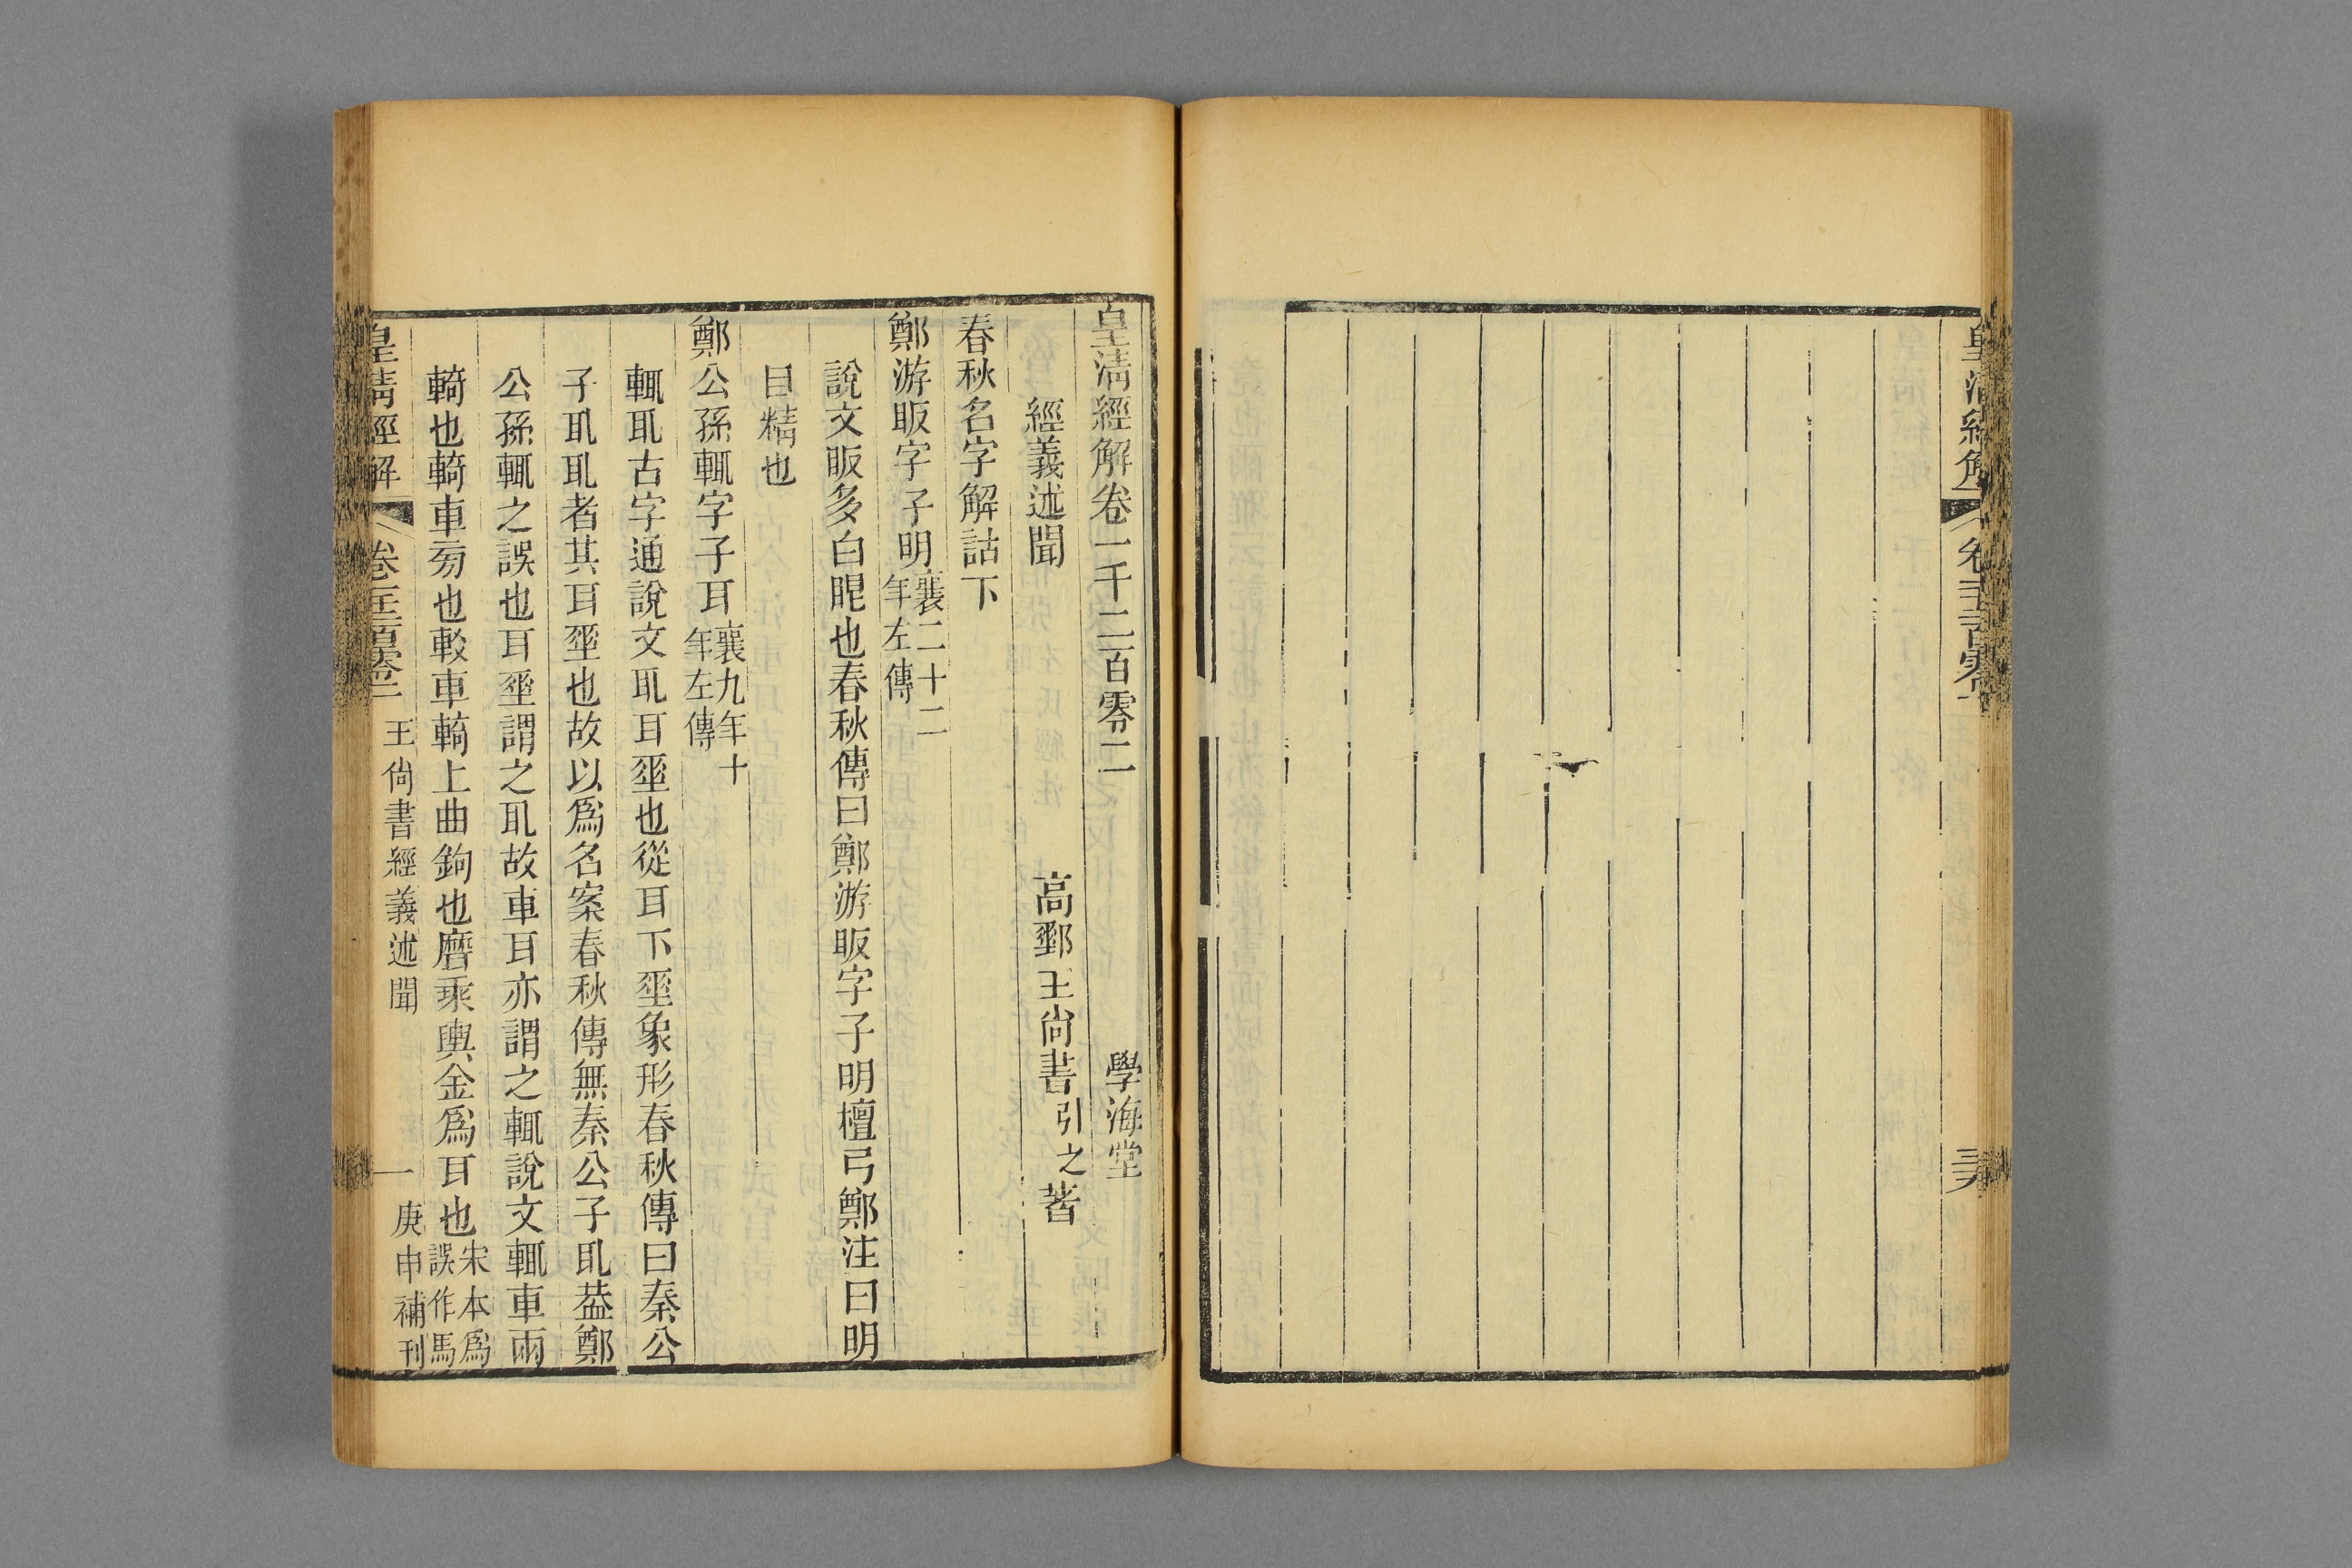 皇清經解
皇清經解卷一千二百零二 學海堂
經義述聞 高郵王尙書引之著
春秋名字解詁下
鄭游眅字子明襄二十二年左傳
說文眅多白眼也春秋傳曰鄭游眅字子明檀弓鄭注曰明
目精也
鄭公孫輒字子耳襄九年十年左傳
輒耴古字通說文耴耳𡍮也從耳下𡍮象形春秋傳曰秦公
子耴耴者其耳𡍮也故以爲名案春秋傳無秦公子耴葢鄭
公孫輒之誤也耳𡍮謂之耴故車耳亦謂之輒說文輒車兩
輢也輢車旁也較車輢上曲鉤也䃺乘輿金爲耳也宋本爲誤作馬
皇清經解 卷一千二百零二 王尙書經義述聞 一 庚申補刊